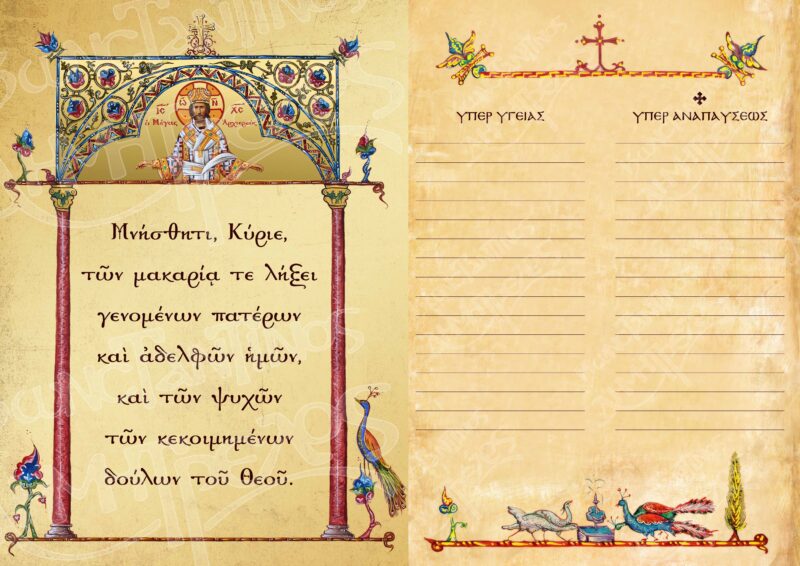 ΙC ΧC
Ο Ω Ν
ὁ Μέγας Ἀρχιερεύς
Μνήσθητι, Κύριε,
τῶν μακαρίᾳ τε λήξει
γενομένων πατέρων
καὶ ἀδελφῶν ἡμῶν,
καὶ τῶν ψυχῶν
τῶν κεκοιμημένων
δούλων τοῦ Θεοῦ.
ΥΠΕΡ ΥΓΕΙΑΣ
ΥΠΕΡ ΑΝΑΠΑΥΣΕΩΣ